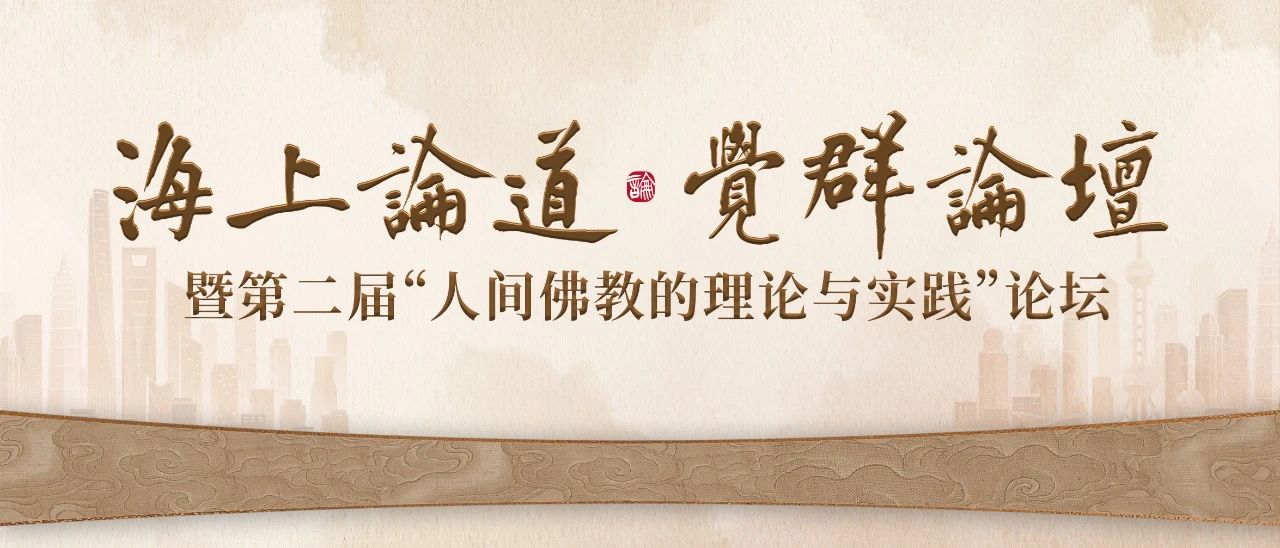 海上論道·覺群論壇
暨第二届“人间佛教的理论与实践”论坛